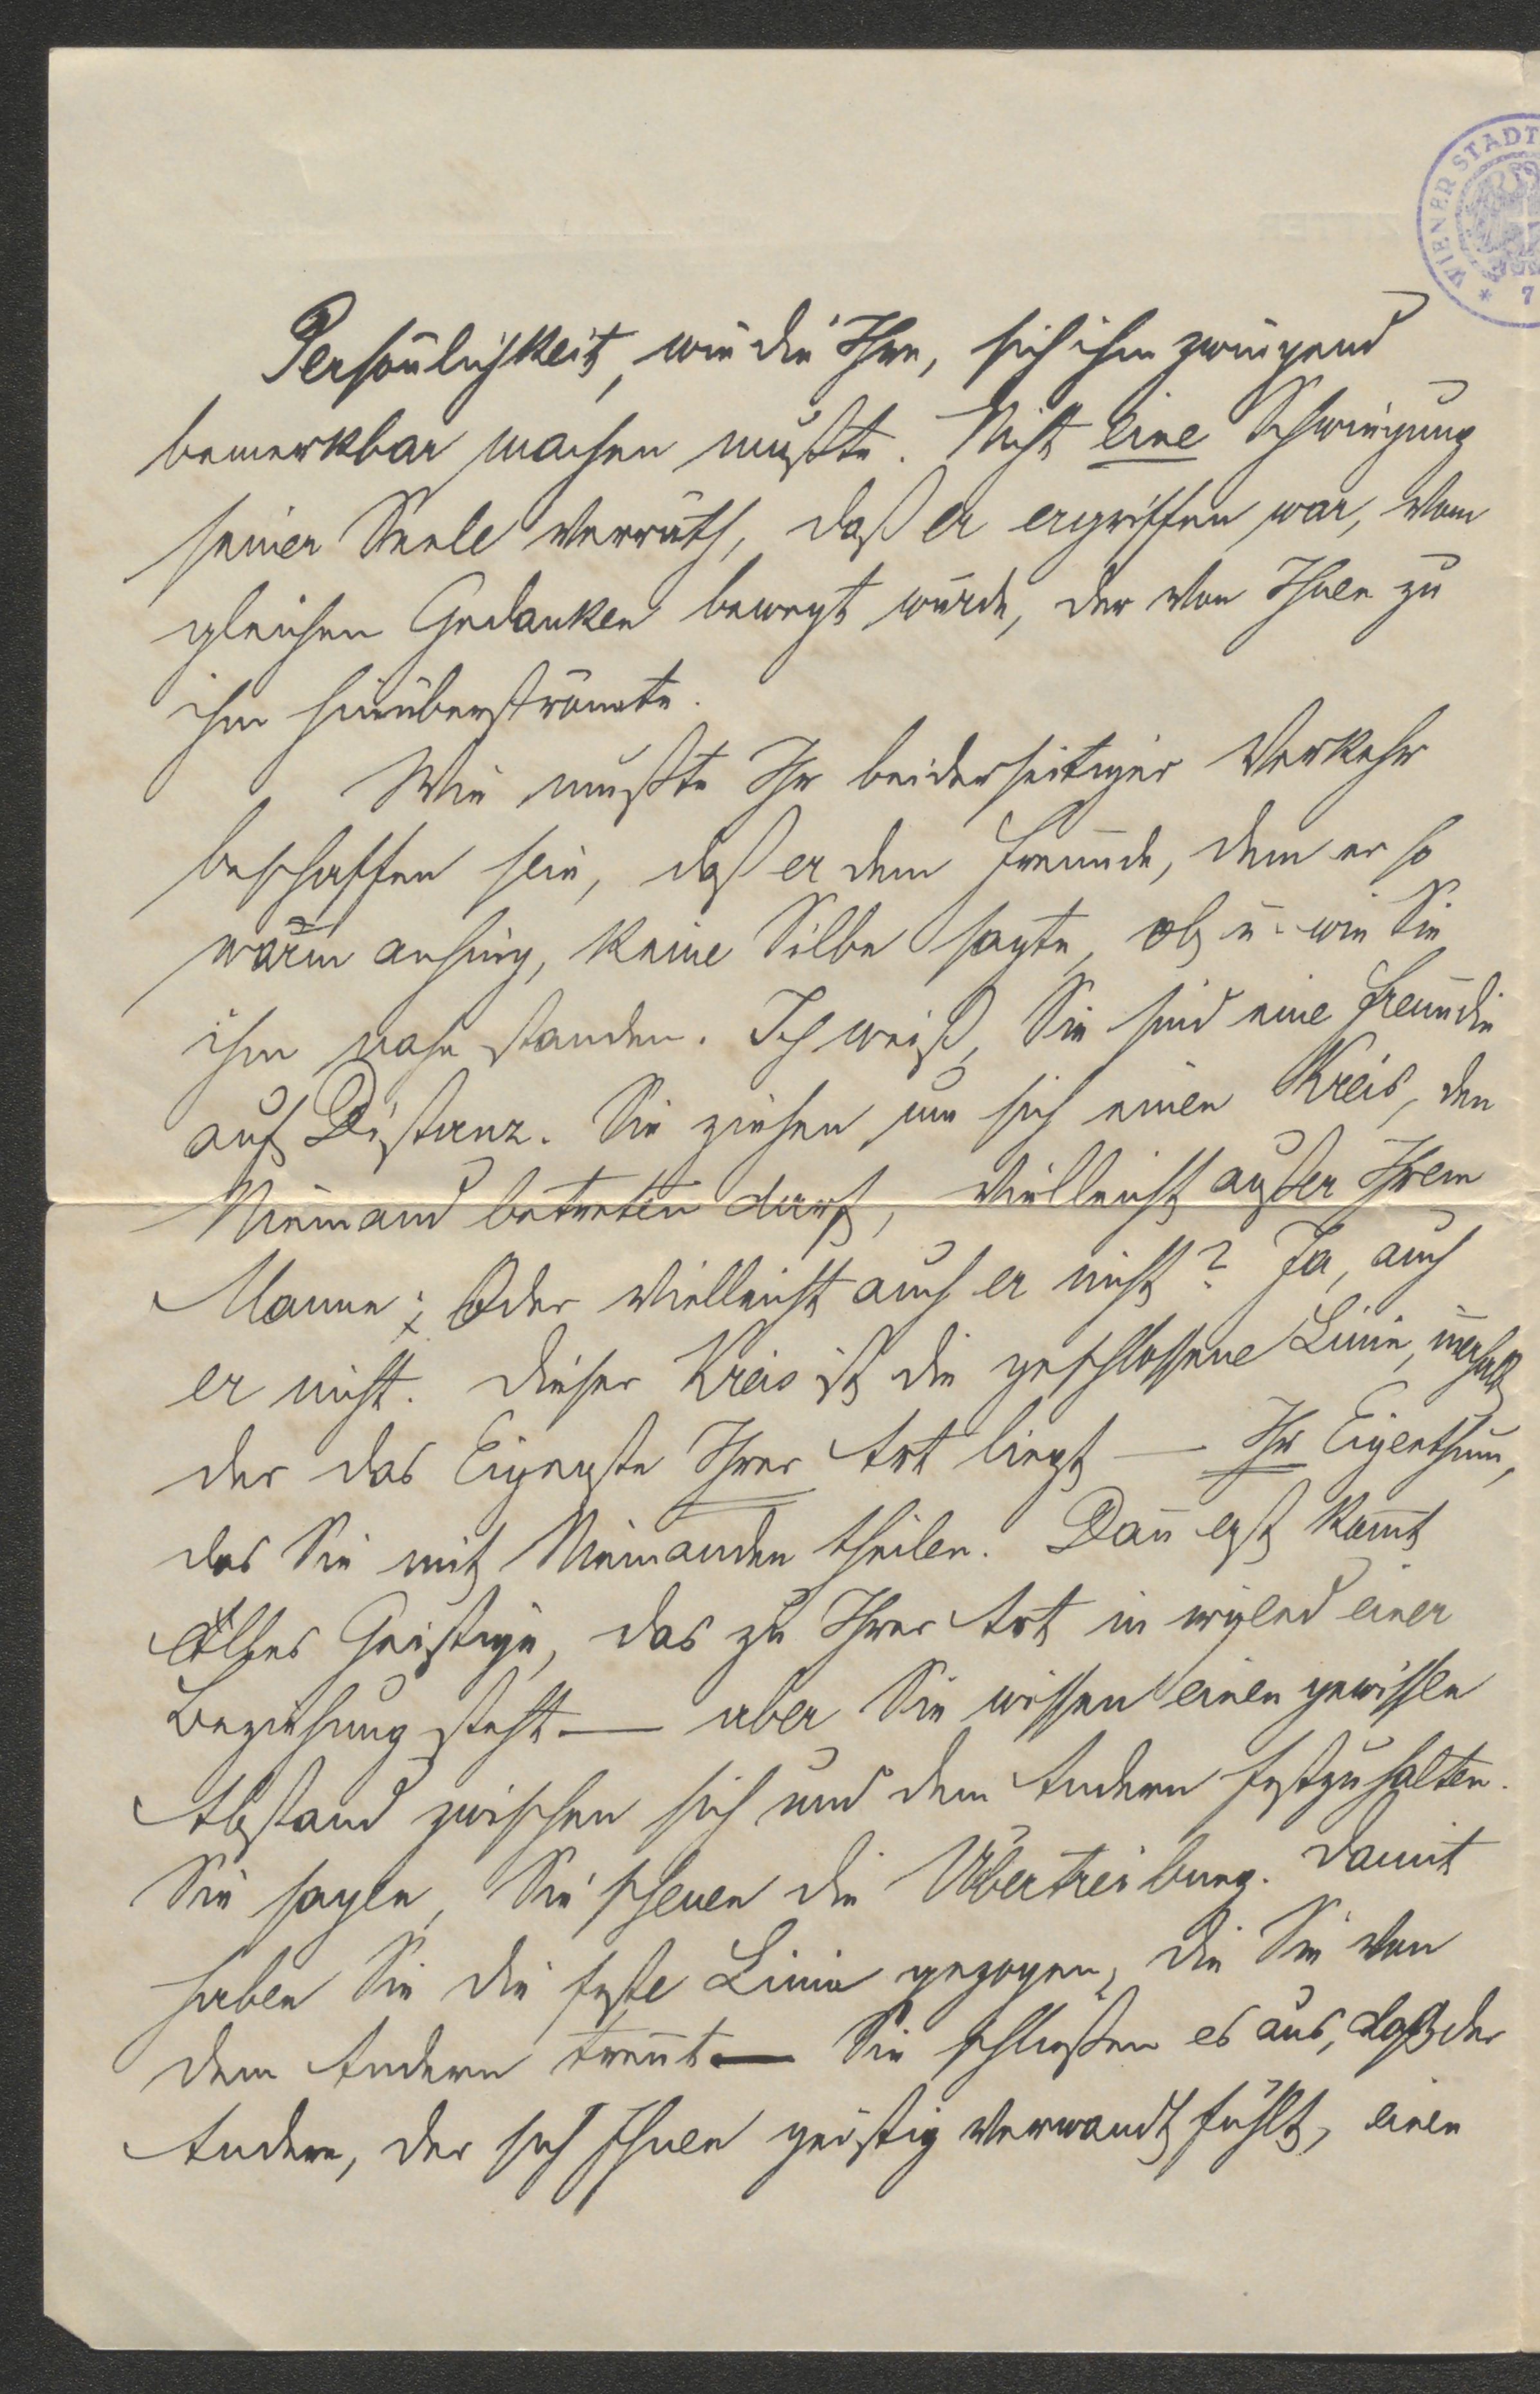 WIENER STADT
* 7
Persönlichkeit, wie die Ihre, sich ihm zwingend
bemerkbar machen mußte. Nicht eine Schwingung
seiner Seele verräth, daß er ergriffen war, vom
gleichen Gedanken bewegt wurde, der von Ihnen zu
ihm hinüberströmte.
Wie mußte Ihr beiderseitiger Verkehr
beschaffen sein, daß er dem Freunde, dem er so
warm anhing, keine Silbe sagte, ob u. wie Sie
ihm nahe standen. Ich weiß, Sie sind eine Freundin
auf Distanz. Sie ziehen um sich einen Kreis, den
Niemand betreten darf, vielleicht außer Ihrem
Manne; Oder vielleicht auch er nicht? Ja, auch
er nicht. Dieser Kreis ist die geschlossene Linie, innerhalb
der das Eigenste Ihrer Art liegt — Ihr Eigenthum,
das Sie mit Niemanden theilen. Dann erst kommt
alles Geistige, das zu Ihrer Art in irgend einer
Beziehung steht — aber Sie wissen einen gewissen
Abstand zwischen sich und dem Andern festzuhalten.
Sie sagen, Sie scheuen die Übertreibung. Damit
haben Sie die feste Linie gezogen, die Sie von
dem Andern trennt — Sie schließen es aus, daß der
Andere, der sich Ihnen geistig verwandt fühlt, einen